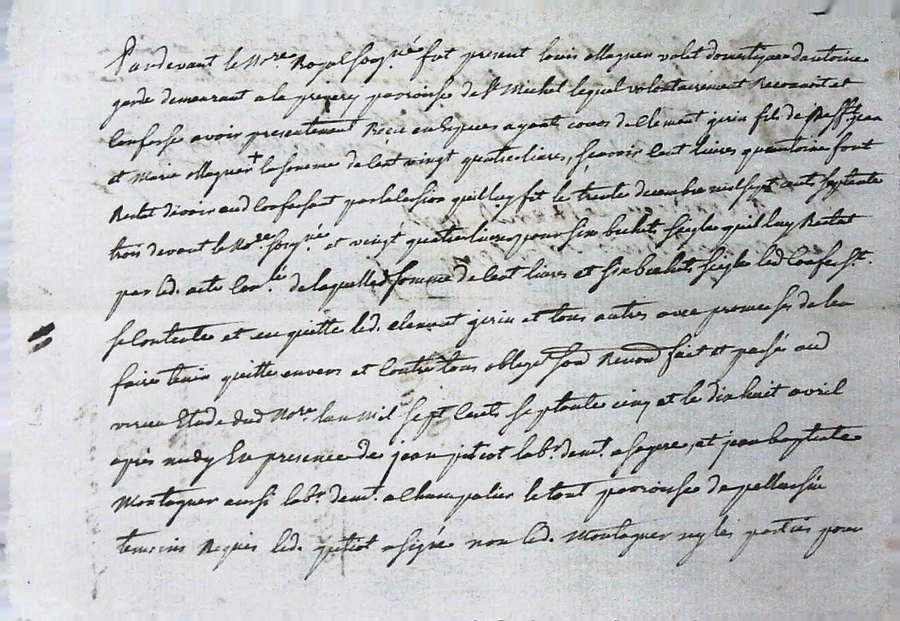 Pardevant le No.re Royal soŭg.né fut present louis Maguen valet domestique dantoine
garde demeurant a la prevery parroisse de St Michel lequel volontairement Reconnoit et
Confesse avoir presentement Receu en Especes ayant cours de Clement gerin fils de jean
et Marie Maguen + la somme de Cent vingt quatre livres, scavoir Cent livres quantoine font
Restet devoir aud Confessant par la cession quil luy fit le trente decembre mil sept cents septante
trois devant le No.re soŭg.né et vingt quatre livres pour six bichets seigle quil luy Restat
par led. acte de laquelle somme de Cent livres et six bichets seigle led Confess.t
se Contente et en quitte led. Clement gerin et tous autres avec promesses de len
faire tenir quitte envers et Contre tous oblige.t soŭ Renon.d fait et passé aud
virieu Etude dud No.re lan Mil sept Cents septante cinq et le dixhuit avril
apres midy En presence de jean pitiot lab.r dem.t a et jean baptiste
Montagner aussi lab.r dem.t a Champalier le tout parroisse de pellussin
temoins Requis led. pitiot a signé non led. Montagner ny les parties pour